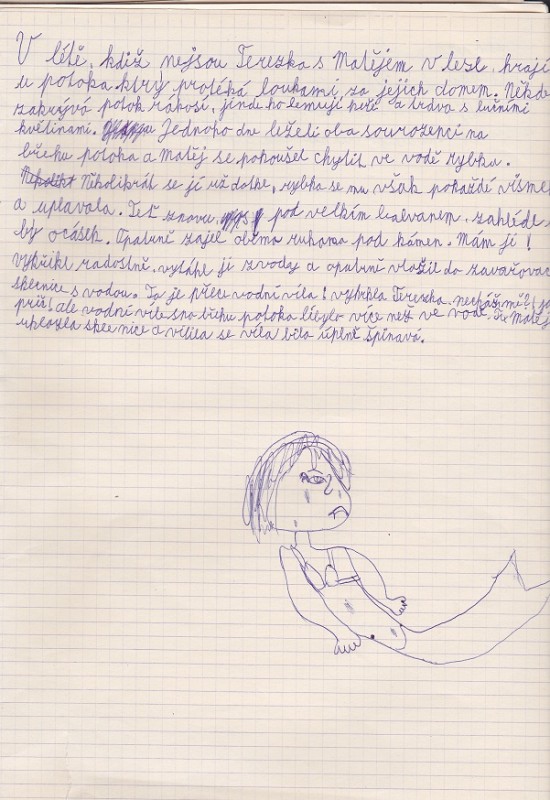 V létě, když nejsou Terezka s Matějem v lese, hrají
u potoka ktrý protéká loukami za jejich domem. Někde
zakrývá potok rákosí, jinde ho lemují keře a tráva s lučními
květinami. Jednoho dne leželi oba sourozenci na
břehu potoka a Matěj se pokoušel chytit ve vodě rybku.
Několikrát se jí už dotkl, rybka se mu však pokaždé
a uplavala. Teť znovu pod velkím balvanem, zahléde
by ocásek. Opatrně zajel oběma rukama pod kámen. Mám jí!
vykřikl radostně, vytáhl jí z vody a opatrně vložil do zavařovac
sklenice s vodou. To je přece vodní víla! vykřikla Terezka.
ale vodní víle na břehu potoka líbylo více než ve vodě.
sklenice a viděla se víla byla úplně špinavá.